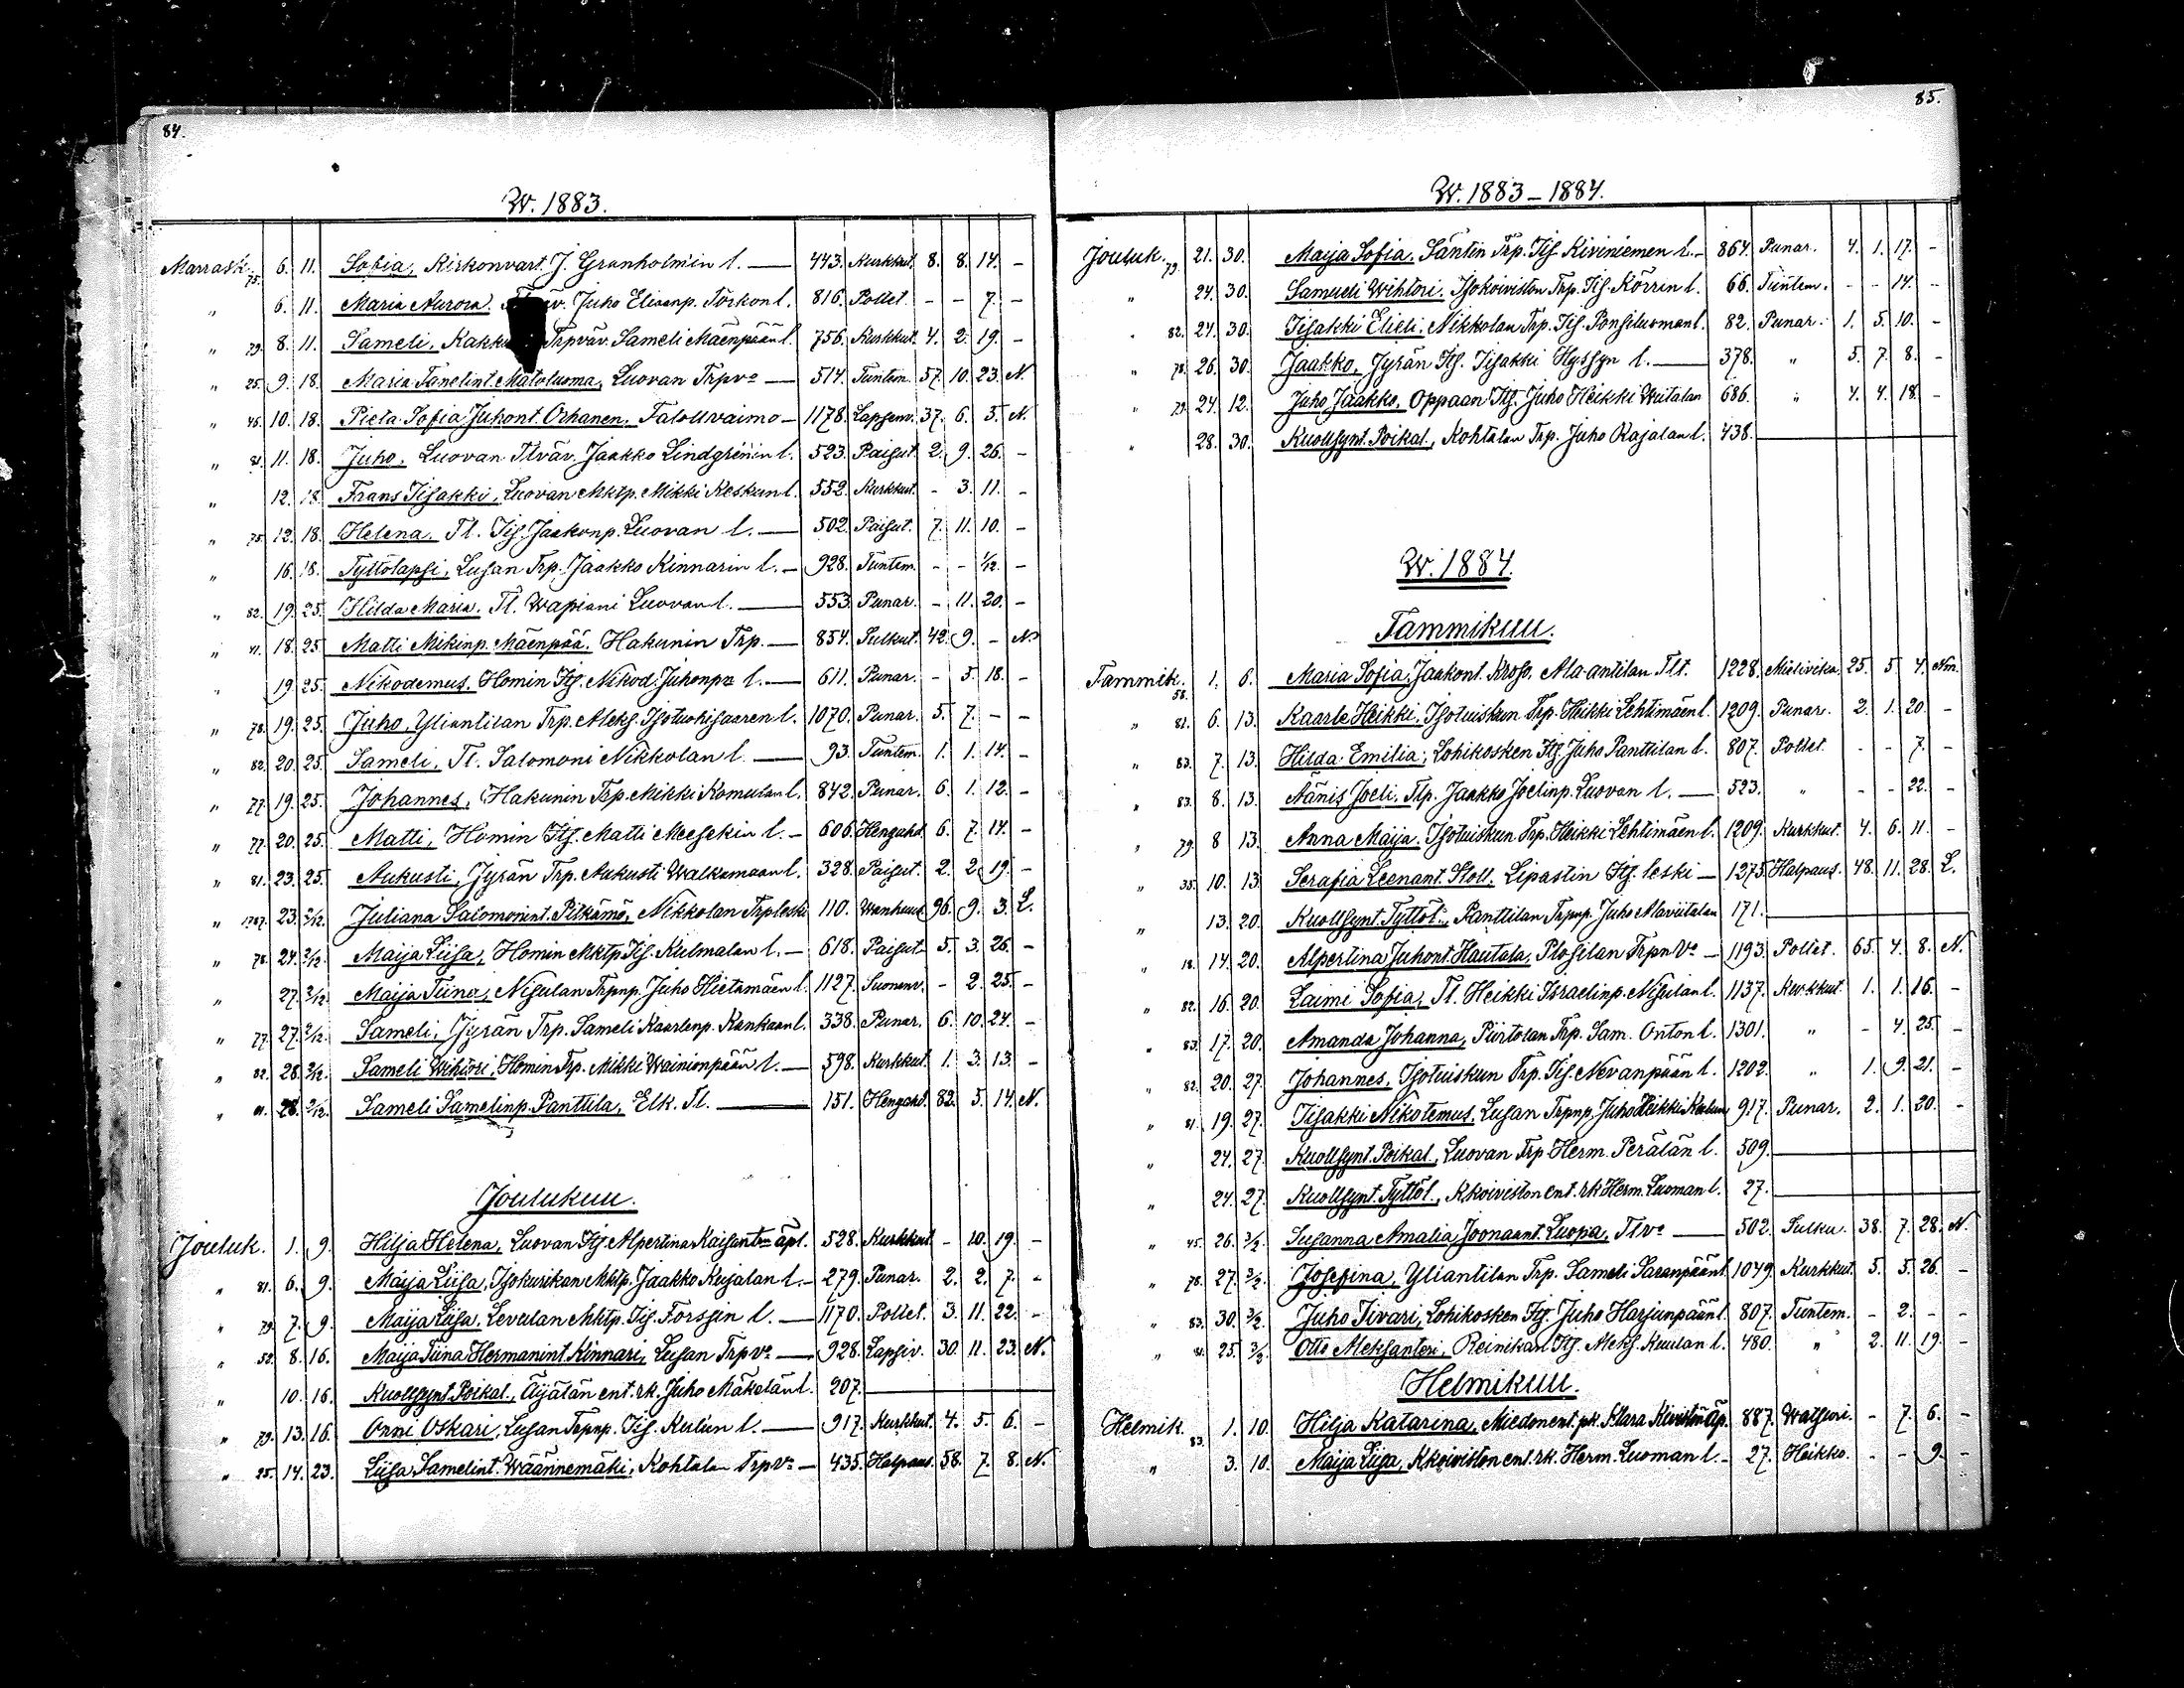 84.
W. 1883.
Marrask. 75. 6. 11. Sofia, Kirkonvart. J. Granholmin l. — 443. Kurkkut. 8. 8. 14. -
„ 6. 11. Maria Aurora. Juho Elianp. Törkön l. 816. Poltet. - - 7. -
„ 79. 8. 11. Sameli, Trpväv. Sameli Mäenpään l. 756. Kurkkut. 4. 2. 19. -
„ 25. 9. 18. Maria Tanelint. Matoluoma, Luovan Trpva — 514. Tuntem. 57. 10. 23. N.
„ 46. 10. 18. Pieta Sofia Juhont. Orhanen. Talollvaimo — 1178. Lapsenv. 37. 6. 3. N.
„ 81. 11. 18. Juho. Luovan Tlväv. Jaakko Lindgrenin l. 523. Paisut. 2. 9. 26. -
„ 12. 18. Frans Iisakki, Luovan Mktp. Mikki Keskun l. 552. Kurkkut. - 3. 11. -
„ 75. 12. 18. Helena. Tl. Iis. Jaakonp. Luovan l. — 502. Paisut. 7. 11. 10. -
„ 16. 18. Tyttölapsi, Lusan Trp. Jaakko Kinnarin l. — 928. Tuntem. - - 1/12. -
„ 82. 19. 25. Hilda Maria. Tl. Wapiani Luovan l. — 553. Punar. - 11. 20. -
„ 41. 18. 25. Matti Mikinp. Mäenpää. Hakunin Trp. — 854. Sulkut. 42. 9. - N
„ 19. 25. Nikodemus. Homin Its. Nikod. Juhonpn l. — 611. Punar. - 5. 18. -
„ 78. 19. 25. Juho, Yliantilan Trp. Aleks. Isotuohisaaren l. 1070. Punar. 5. 7. - -
„ 82. 20. 25. Sameli, Tl. Salomoni Nikkolan l. — 93. Tuntem. 1. 1. 14. -
„ 77. 19. 25. Johannes, Hakunin Trp. Mikki Komulan l. 842. Punar. 6. 1. 12. -
„ 77. 20. 25. Matti, Homin Its. Matti Meesekin l. — 606. Hengahd. 6. 7. 14. -
„ 81. 23. 25. Aukusti, Jyrän Trp. Aukusti Walkamaan l. 328. Paisut. 2. 2. 19. -
„ 1787. 23. 2/12. Juliana Salomonint. Pitkämö, Nikkolan Trpleski 110. Wanhuus 96. 9. 3. L.
„ 78. 24. 2/12. Maija Liisa, Homin Mktp Iis. Kulmalan l. — 618. Paisut. 5. 3. 26. -
„ 27. 2/12. Maija Tiina, Nisulan Trpnp. Juho Hietamäen l. 1127. Suonenv. - 2. 25. -
„ 77. 27. 2/12. Sameli, Jyrän Trp. Sameli Kaarlenp. Kankaan l. 338. Punar. 6. 10. 24. -
„ 82. 28. 2/12. Sameli Wihtori, Homin Trp. Mikki Wainionpään l. — 598. Kurkkut. 1. 3. 13. -
„ 01. 28. 2/12. Sameli Samelinp. Panttila, Elk. Tl. — 151. Hengahd. 82. 5. 14. N.
Joulukuu.
Jouluk. 1. 9. Hilja Helena, Luovan Its. Alpertina Kaisantn äpl. 528. Kurkkut. - 10. 19. -
„ 81. 6. 9. Maija Liisa, Isokurikan Mktp. Jaakko Kujalan l. — 279. Punar. 2. 2. 7. -
„ 79. 7. 9. Maija Liisa, Levulan Mktp. Iis. Forssin l. — 1170. Polttet. 3. 11. 22. -
„ 52. 8. 16. Maija Tiina Hermanint. Kinnari, Lusan Trpva — 928. Lapsiv. 30. 11. 23. N.
„ 10. 16. Kuollsynt. Poikal., Äijälän ent. rk. Juho Mäkelän l. 207. —
„ 79. 13. 16. Onni Oskari, Lusan Trpnp. Iis. Kulun l. — 917. Kurkkut. 4. 5. 6. -
„ 25. 14. 23. Liisa Samelint. Wäännemäki, Kohtalan Trpva — 435. Halpaus. 58. 7. 8. N.
85.
W. 1883 – 1884.
Jouluk. 79. 21. 30. Maija Sofia. Säntin Trp. Iis. Kiviniemen l. — 864. Punar. 4. 1. 17. -
„ 24. 30. Samueli Wihtori. Isokoiviston Trp. Iis. Körrin l. 66. Tuntem. - - 14. -
„ 82. 24. 30. Iisakki Elieli. Nikkolan Trp. Iis. Ponsiluoman l. 82. Punar. 1. 5. 10. -
„ 78. 26. 30. Jaakko, Jyrän Its. Iisakki Hyssyn l. — 378. „ 5. 7. 8. -
„ 79. 24. 12. Juho Jaakko, Oppaan Its. Juho Heikki Wiitalan 686. „ 4. 4. 18. -
„ 28. 30. Kuollsynt. Poikal., Kohtalan Trp. Juho Rajalan l. 438. —
W. 1884.
Tammikuu.
Tammik. 58. 1. 6. Maria Sofia. Jaakont. Kross. Ala-antilan Tlt. 1228. Mielivika. 25. 5. 4. Nm.
„ 81. 6. 13. Kaarle Heikki, Isotuiskun Trp. Heikki Lehtimäen l. 1209. Punar. 2. 1. 20. -
„ 83. 7. 13. Hilda Emilia; Lohikosken Its. Juho Panttilan l. 807. Polttet. - - 7. -
„ 83. 8. 13. Äänis Joeli, Tlp. Jaakko Joelinp. Luovan l. — 523. „ - - 22. -
„ 79. 8 13. Anna Maija. Isotuiskun Trp. Heikki Lehtimäen l. 1209. Kurkkut. 4. 6. 11. -
„ 35. 10. 13. Serafia Leenant. Stoll. Lipastin Its. leski — 1275. Halpaus. 48. 11. 28. L.
„ 13. 20. Kuollsynt. Tyttöl., Panttilan Trpnp. Juho Alaviitalan 171. —
„ 18. 14. 20. Alpertina Juhont. Hautala, Plosilan Trpn Va — 1193. Polttet. 65. 4. 8. N.
„ 82. 16. 20. Laimi Sofia, Tl. Heikki Israelinp. Nisulan l. 1137. Kurkkut. 1. 1. 16. -
„ 83. 17. 20. Amanda Johanna, Piirtolan Trp. Sam. Onton l. 1301. „ - 4. 25. -
„ 82. 20. 27. Johannes, Isotuiskun Trp. Iis. Nevanpään l. 1202. „ 1. 9. 21. -
„ 81. 19. 27. Iisakki Nikotemus. Lusan Trpnp. Juho Heikki Kulun 917. Punar. 2. 1. 20. -
„ 24. 27. Kuollsynt. Poikal., Luovan Trp. Herm. Perälän l. 509. —
„ 24. 27. Kuollsynt. Tyttöl., Kkoiviston ent. rk. Herm. Luoman l. 27. —
„ 45. 26. 3/2. Susanna Amalia Joonaant. Luopa, Tlva — 502. Sulku. 38. 7. 28. N.
„ 78. 27. 3/2. Josefina, Yliantilan Trp. Sameli Saranpään l. 1049. Kurkkut. 5. 5. 26. -
„ 83. 30. 3/2. Juho Iivari, Lohikosken Its. Juho Harjunpään l. 807. Tuntem. - 2. - -
„ 81. 25. 3/2. Otto Aleksanteri, Reinikan Its. Aleks. Kuulan l. 480. „ 2. 11. 19. -
Helmikuu.
Helmik. 83. 1. 10. Hilja Katarina, Miedon ent. pk. Klara Kivistön Äp. 887. Watsuri. - 7. 6. -
„ 3. 10. Maija Liisa, Kkoiviston ent. rk. Herm. Luoman l. — 27. Heikko. - - 9. -